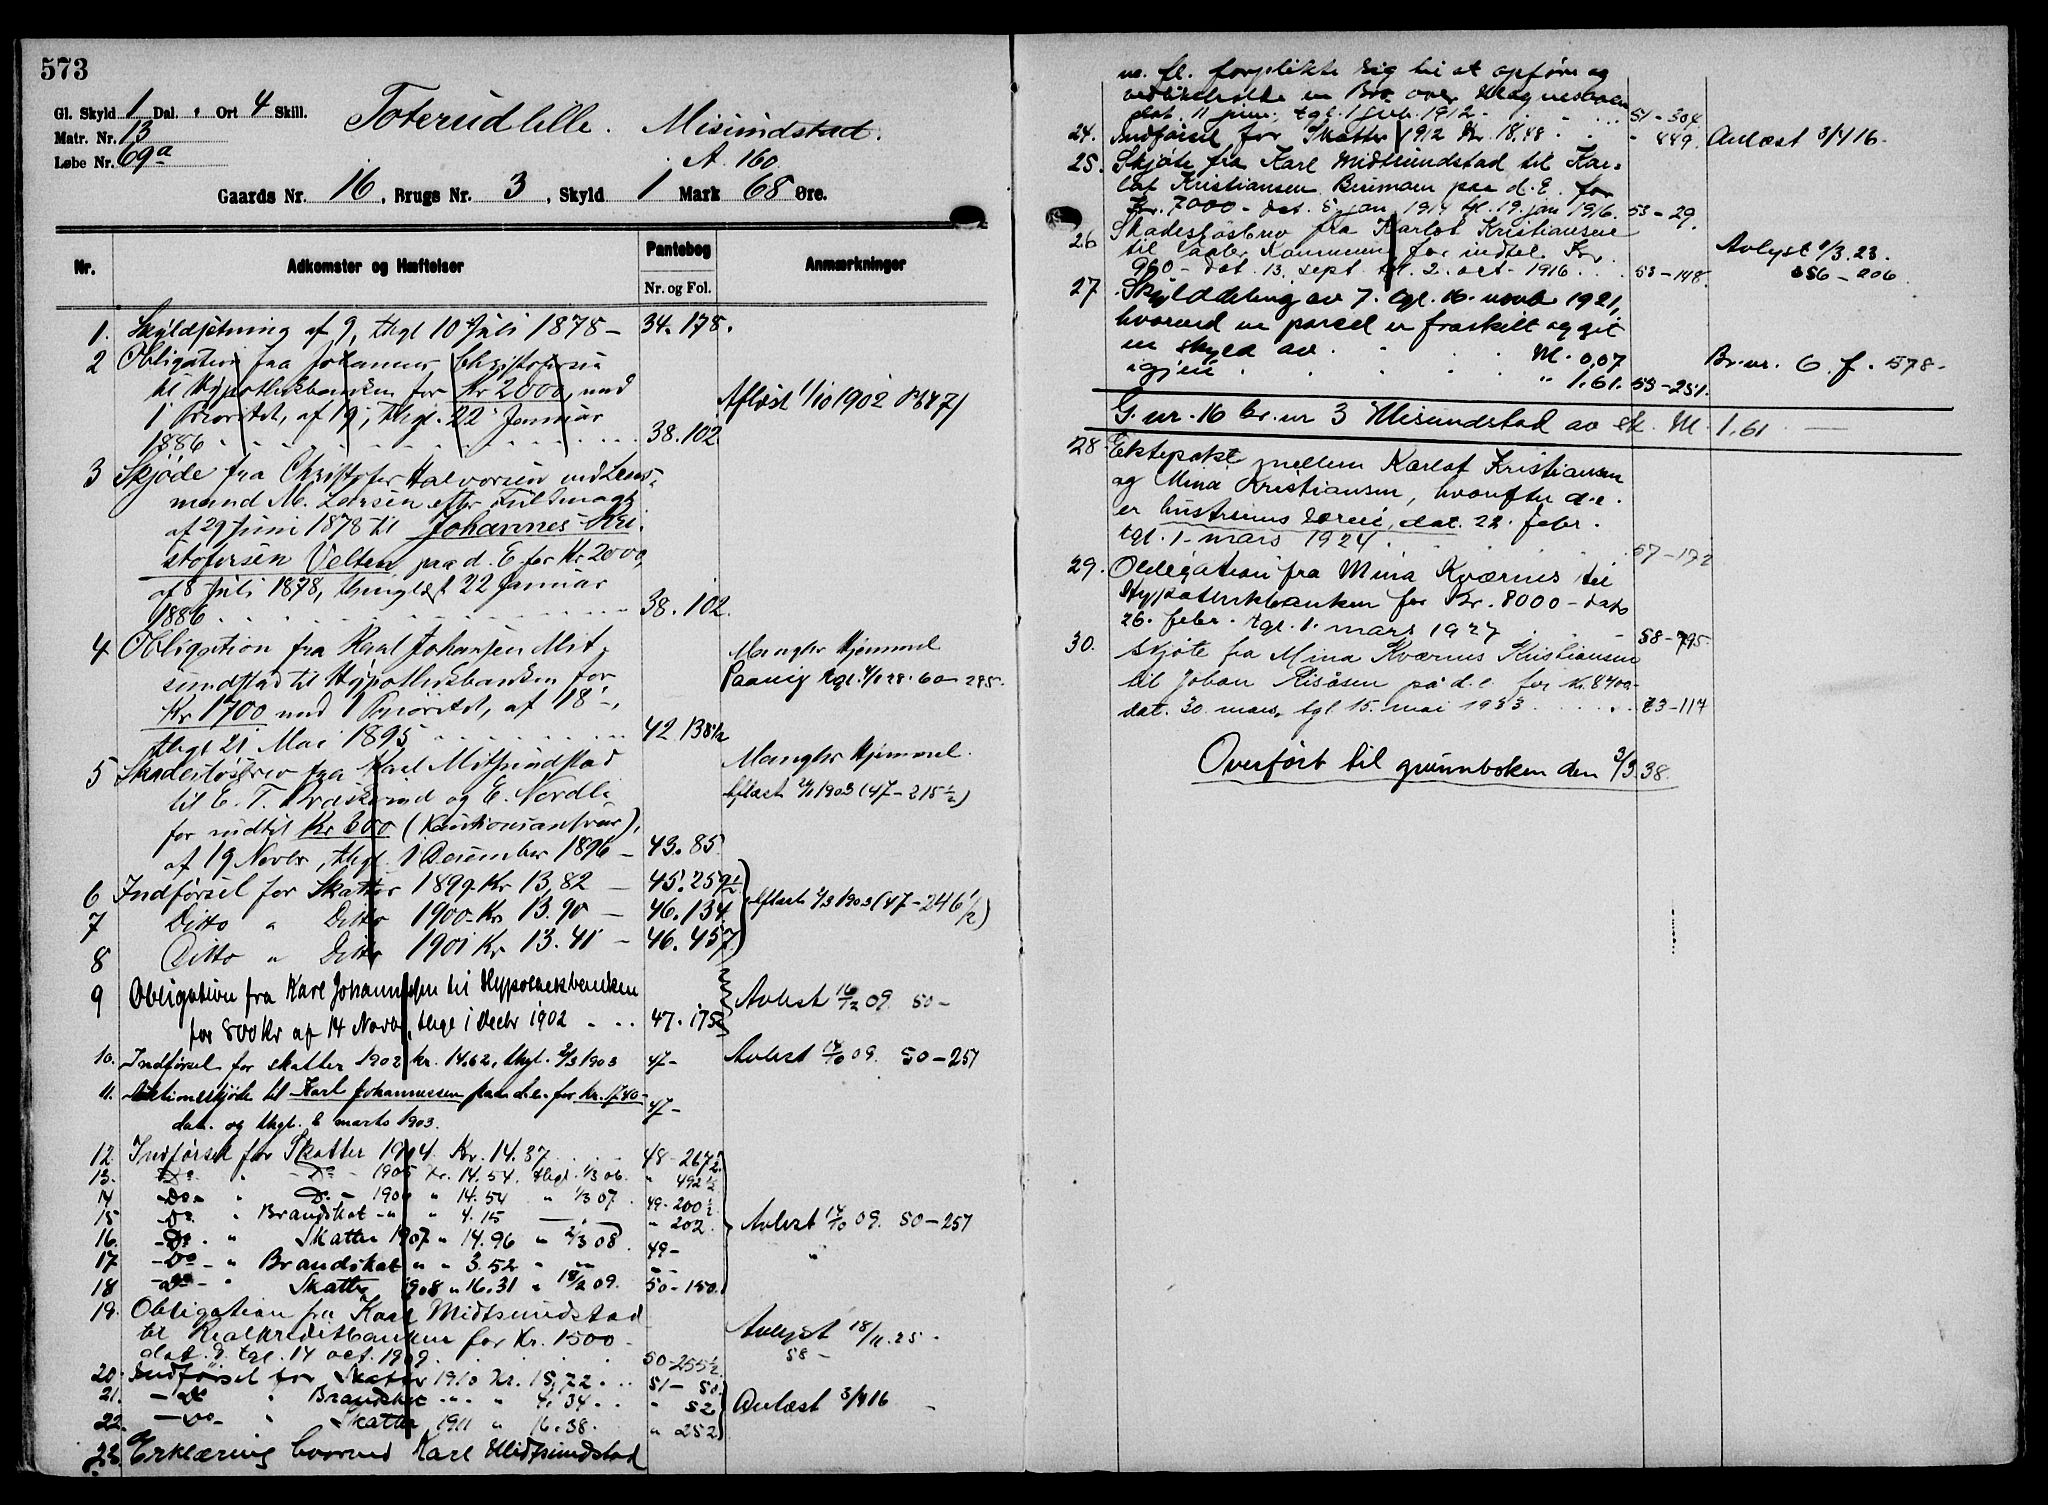 573
Gl. Skyld 1 Dal. " Ort 4 Skill.
Matr. Nr. 13
Løbe Nr. 69a
Toterud lille. Misundstad.
A. 160
Gaards Nr. 16, Brugs Nr. 3, Skyld 1 Mark 68 Øre.
Nr. Adkomster og Hæftelser Pantebog Anmærkninger
Nr. og Fol.
1. Skyldsetning af 9, thgl 10 Juli 1878 — 34. 178.
2 Obligation fra Johannes Christofersen
til Hypothekbanken for Kr 2000, med
1 Prioritet, af 19, thgl. 22 Januar Aflæst 1/10 1902
1886 38. 102
3 Skjøde fra Christofer Halvorsen ved Lens-
mand M. Larsen efter Fuldmagt
af 29 Juni 1878 til Johannes Kri-
stofersen Velten paa d. E. for Kr 2000,
af 8 Juli 1878, thinglæst 22 Januar
1886 38. 102.
4 Obligation fra Karl Johansen Mit-
sundstad til Hypothekbanken for
Kr 1700 med 1 Prioritet, af 18 -,
thgl 21 Mai 1895 42. 138 1/2
Mangler Hjemmel
Paavig tgl. 4/1 28. 60 - 285.
5 Skadesløsbrev fra Karl Mitsundstad
til E. T. Braskerud og E. Nordli
for indtil Kr 600 (Kautionsansvar),
af 19 Novbr, thgl. 1 December 1896 — 43. 85
Mangler Hjemmel.
Aflæst 1903 (47 - 215 1/2)
6 Indførsel for Skatter 1899 Kr 13,82 — 45. 259 1/2
7 Ditto " Ditto 1900 Kr 13.90 — 46. 134 Aflæst 2/3 1903 (47 - 246 1/2)
8 Ditto " Ditto 1901 Kr 13.41 — 46. 457
9 Obligation fra Karl Johannessen til Hypothekbanken
for 800 Kr af 14 Novbr, thgl 1 Decbr 1902 47. 175 Avlest 16/2 09. 50 -
10. Indførsel for skatter 1902 kr. 14.62, thgl. 2/3 1903 47 - Avlest 14/10 09. 50 - 257
11. Auktionsskjøde til Karl Johannessen paa d.e. for kr. 1740 -
dat. og thgl. 2 marts 1903. 47 -
12. Indførsel for Skatter 1904 Kr. 14.37 48 - 267 1/2
13. Do. " Do - 1905 Kr. 14.54. thgl. 1/3 06. " 492 1/2
14 - Do - " Do - 1906 " 14.54 " 1/3 07. 49 - 200 1/2
15 Do. " Brandskat - " " 4.15 " 202. Avlest 14/10 09. 50 - 257
16. - Do. " Skatter 1907 " 14.96 " 2/3 08. 49 - "
17 - Do - " Brandskat " " 3.52 " " "
18 - do - " Skatter 1908 " 16.31 " 18/2 09. 50 - 150.
19. Obligation fra Karl Midtsundstad
til Realkreditbanken for Kr. 1500 -
dat. 9. tgl. 14 oct. 1909. 50 - 255 1/2
Avlyst 18/11. 25.
58 -
20. Indførsel for Skatter 1910 Kr. 15,22. 51 - 50
21. - do " Brandskat - " - " 4,34 " 52 Avlæst 3/4 16
22. - Do - " Skatter 1911 " 16.38. " 252
23. Erklæring hvorved Karl Midtsundstad
m. fl. forplikter sig til at opføre og
vedlikeholde en Bro over Magnesaaen
dat. 11 juni, tgl. 1 febr. 1912. 51 - 304
24. Indførsel for Skatter 1912 Kr. 18,48 " 449. Avlæst 3/4 16.
25. Skjøte fra Karl Midtsundstad til Kar-
lot Kristiansen Buimoen paa d. E. for
Kr. 7000 - dat. 5. jan 1914 tgl. 19. jan 1916. 53 - 29.
26 Skadesløsbrev fra Karlot Kristiansen
til Vaaler Kommune for indtil Kr.
900 - dat. 13. sept. tgl. 2. oct. 1916. 53 - 148.
Avlyst 1/3. 23.
56 - 206
27 Skylddeling av 7. tgl. 16. novb 1921,
hvorved en parsel er fraskilt og git
en skyld av M. 0,07 Br. nr. 6. f. 578.
igjen " 1.61. 53 - 251.
G. nr. 16 br. nr 3 Misundstad av sk. M. 1,61 —
28 Ektepakt mellem Karlot Kristiansen
og Mina Kristiansen, hvorefter d.e.
er hustruens særeie, dat. 22. febr.
tgl. 1. mars 1924. 57 - 172
29. Obligation fra Mina Kværnes til
Hypotekbanken for Kr. 8000 - dat.
26. febr. tgl. 1. mars 1927 58 - 795.
30. Skjøte fra Mina Kværnes Kristiansen
til Johan Risåsen på d.e. for kr. 8400 -
dat. 30. mars, tgl. 15. mai 1933 73 - 117
Overført til grunnboken den 3/3. 38.